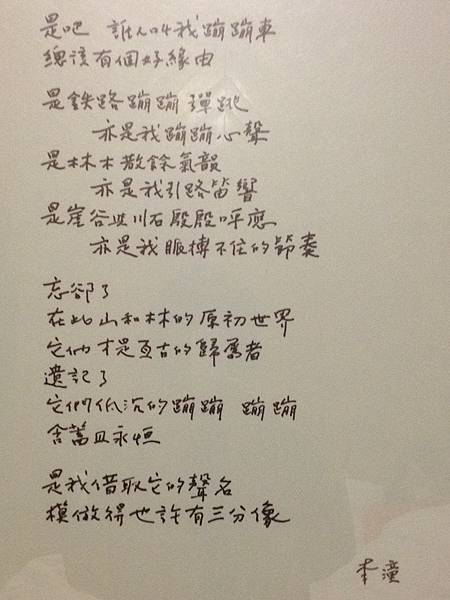 是吧　誰人叫我蹦蹦車
總該有個好緣由
是鉄路蹦蹦彈跳
亦是我蹦蹦心聲
是林木散餘氣韻
亦是我引路笛響
是崖谷岩石殷殷呼應
亦是我脈搏不住的節奏
忘卻了
在此山和林的原初世界
它们才是亙古的歸屬者
遺記了
它們低沉的蹦蹦　蹦蹦
含蓄且永恒
是我借取它的聲名
模倣得也許有三分像
李潼